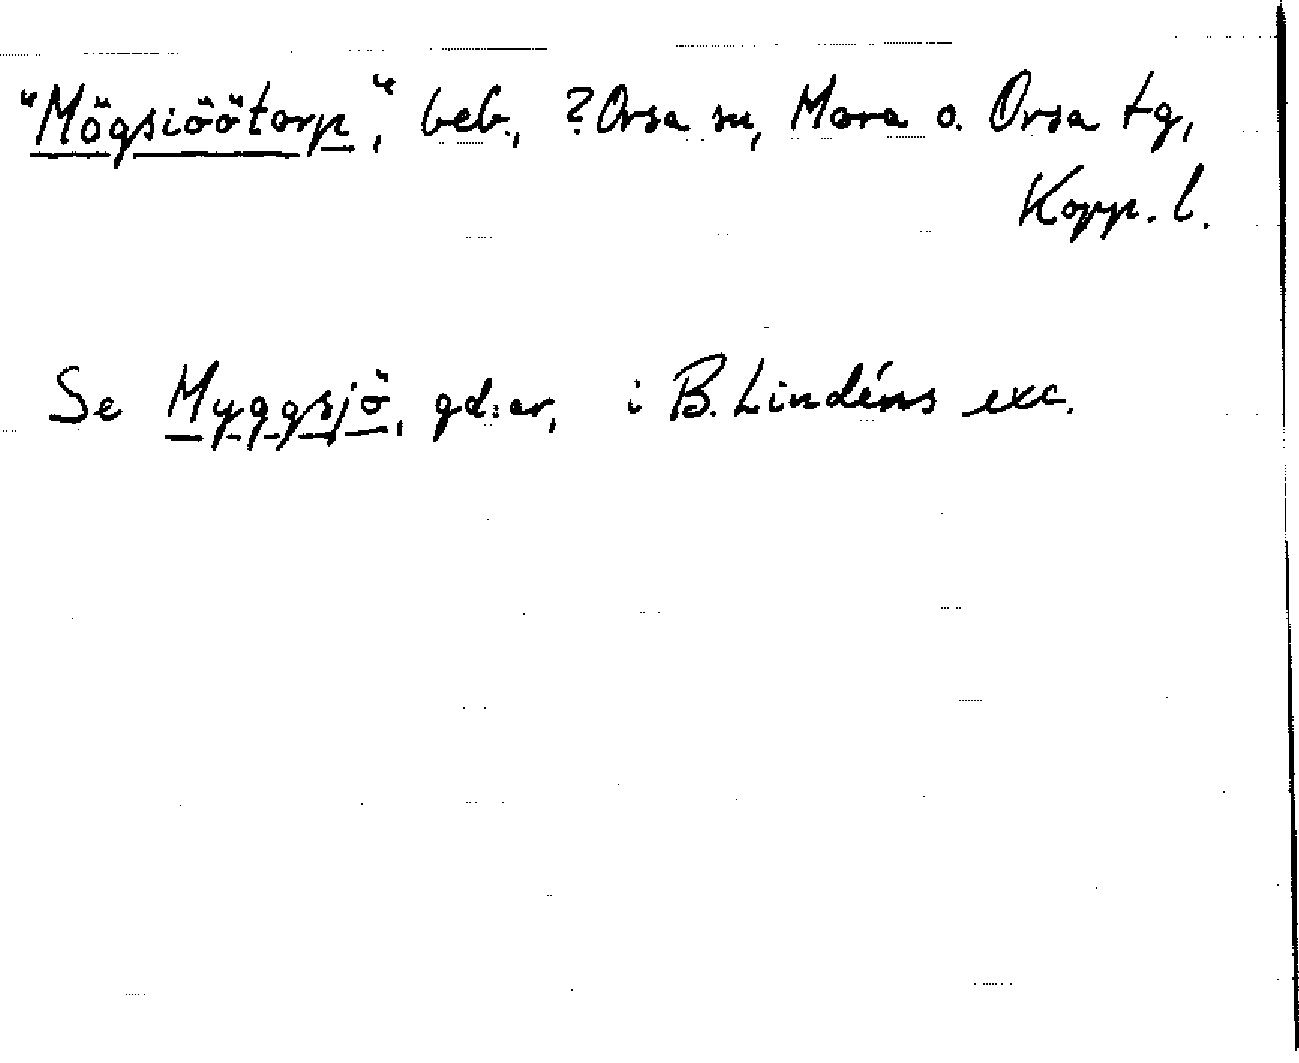 "Mögsiöötorp", beb., ? Orsa sn, Mora o. Orsa tg,
Kopp. l.
Se Myggsjö, gd:ar, i B. Lindéns exc.